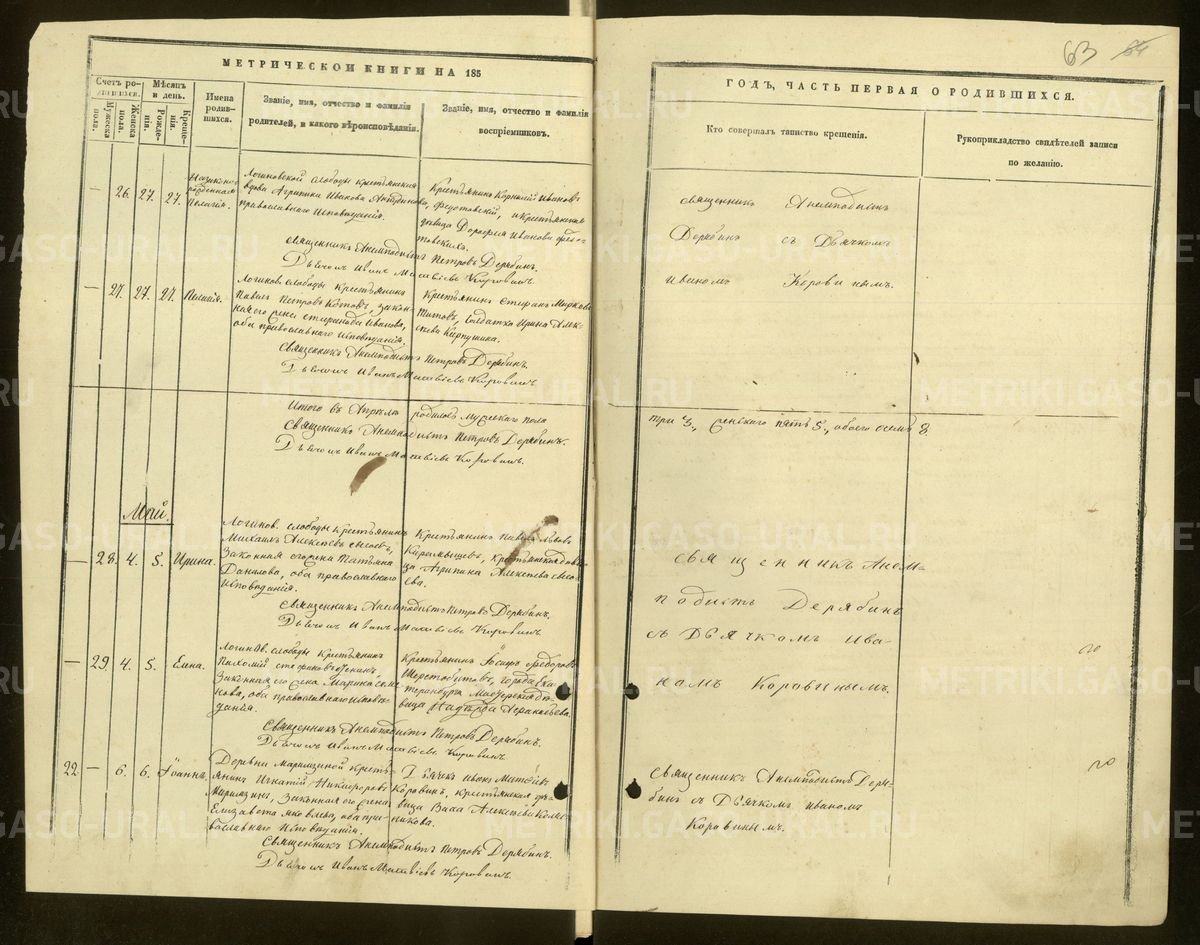 63 64
МЕТРИЧЕСКОЙ КНИГИ НА 185
ГОДЪ, ЧАСТЬ ПЕРВАЯ О РОДИВШИХСЯ.
Счетъ родившихся.
Мужеска пола.
Женска пола.
Мѣсяцъ и день.
Рожденія.
Крещенія.
Имена родившихся.
Званіе, имя, отчество и фамилія
родителей, и какого вѣроисповѣданія.
Званіе, имя, отчество и фамилія
воспріемниковъ.
Кто совершалъ таинство крещенія.
Рукоприкладство свидѣтелей записи
по желанію.
— 26. 27. 27.
Пелагія.
Логиновской слободы крестьянская
вдова Агрипина Ивановна
православнаго Исповѣданія.
Крестьянинъ Корнилій Ивановъ
Федотовскій, и крестьянская
девица Дорофея Иванова Федотовскихъ.
Священникъ Анемподистъ Петровъ Дерябинъ.
Дьячокъ Иванъ Матвѣевъ Коровинъ.
Священникъ Анемподистъ
Дерябинъ съ Дьячкомъ
Иваномъ Коровинымъ.
— 27. 27. 27. Пелагія.
Логинов. слободы Крестьянинъ
Павелъ Петровъ Котовъ, законная
его жена Иванова,
оба православнаго Исповѣданія.
Крестьянинъ Марковъ
Титовъ, Солдатка Ирина Алексѣева
Священникъ Анемподистъ Петровъ Дерябинъ.
Дьячокъ Иванъ Матвѣевъ Коровинъ.
Итого въ Апрѣлѣ родилось мужескаго пола
три 3., женскаго пять 5., обоего осмь 8.
Священникъ Анемподистъ Петровъ Дерябинъ.
Дьячокъ Иванъ Матвѣевъ Коровинъ.
Май.
— 28. 4. 5. Ирина.
Логинов. слободы Крестьянинъ
Михаилъ Алексѣевъ
Законная его жена Татьяна
Данилова, оба православнаго
Исповѣданія.
Крестьянинъ Павелъ
крестьянская девица
Агрипина Алексѣева
Священникъ Анемподистъ Петровъ Дерябинъ.
Дьячокъ Иванъ Матвѣевъ Коровинъ.
Священникъ Анемподистъ
Дерябинъ
съ Дьячкомъ Иваномъ
Коровинымъ.
— 29. 4. 5. Елена.
Логинов. слободы Крестьянинъ
Пахомій
Законная его жена Марина
оба православнаго Исповѣданія.
Крестьянинъ Федоровъ
Шерстобитовъ, города Екатеринбурга
девица
Священникъ Анемподистъ Петровъ Дерябинъ.
Дьячокъ Иванъ Матвѣевъ Коровинъ.
22. — 6. 6. Іоаннъ.
Деревни Марамзиной Крестьянинъ
Игнатій Никифоровъ
Марамзинъ, Законная его жена
Елизавета Яковлева, оба православнаго
Исповѣданія.
Дьячекъ Иванъ Матвѣевъ
Коровинъ, крестьянская девица
Васса Алексѣева
Священникъ Анемподистъ Петровъ Дерябинъ.
Дьячокъ Иванъ Матвѣевъ Коровинъ.
Священникъ Анемподистъ Дерябинъ
съ Дьячкомъ Иваномъ
Коровинымъ.
METRIKI.GASO-URAL.RU